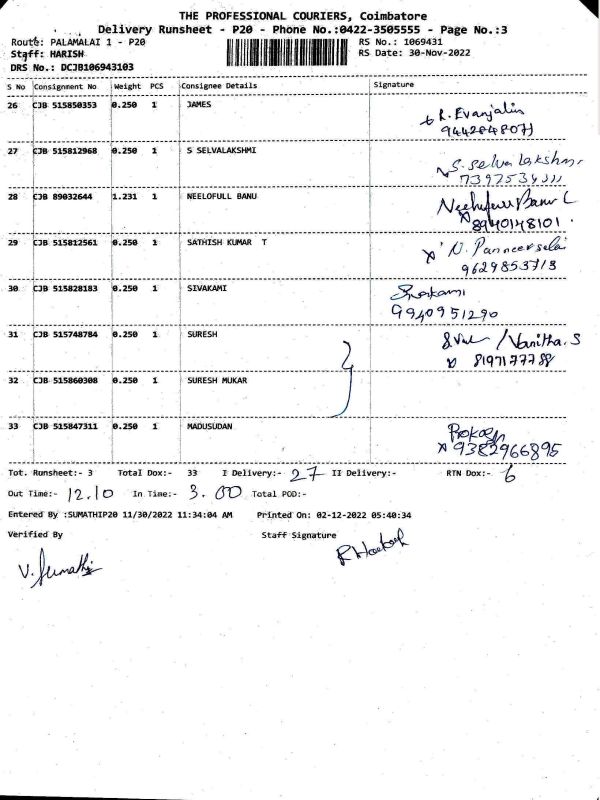 THE PROFESSIONAL COURIERS, Coimbatore
Delivery Runsheet - P20 - Phone No.:0422-3505555 - Page No.:3
Route: PALAMALAI 1 - P20 RS No.: 1069431
Staff: HARISH RS Date: 30-Nov-2022
DRS No.: DCJB106943103
S No Consignment No Weight PCS Consignee Details Signature
26 CJB 515850353 0.250 1 JAMES R. Evanjalin
27 CJB 515812968 0.250 1 S SELVALAKSHMI S. Selva lakshmi
28 CJB 89032644 1.231 1 NEELOFULL BANU
8940148101
29 CJB 515812561 0.250 1 SATHISH KUMAR T N. Panneerselai
9629853713
30 CJB 515828183 0.250 1 SIVAKAMI
9940951290
31 CJB 515748784 0.250 1 SURESH / Vanitha. S
8197177788
32 CJB 515860308 0.250 1 SURESH MUKAR
33 CJB 515847311 0.250 1 MADUSUDAN
9382966895
Tot. Runsheet:- 3 Total Dox:- 33 I Delivery:- 27 II Delivery:- RTN Dox:- 6
Out Time:- 12.10 In Time:- 3.00 Total POD:-
Entered By :SUMATHIP20 11/30/2022 11:34:04 AM Printed On: 02-12-2022 05:40:34
Verified By Staff Signature
V. Sumathi